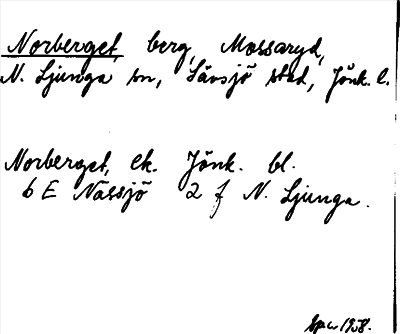 Norberget, berg, Mossaryd,
N. Ljunga sn, Sävsjö stad, Jönk. l.
Norberget, ek. Jönk. bl.
6 E Nässjö 2 f N. Ljunga.
1958.